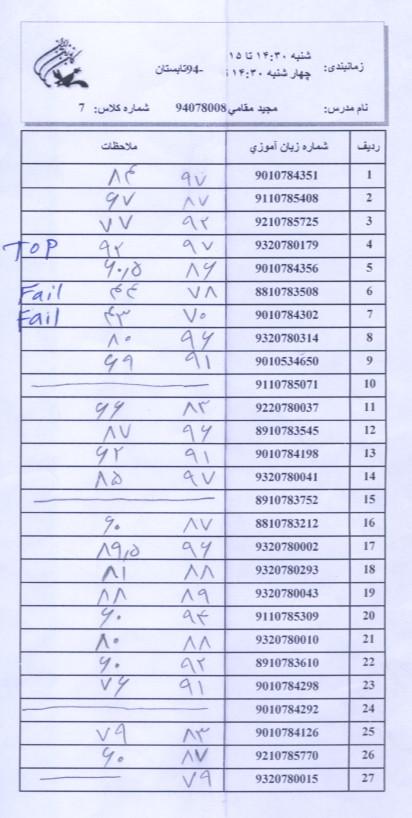 زمانبندی: شنبه ۱۴:۳۰ تا ۱۵
چهارشنبه ۱۴:۳۰ -94تابستان
نام مدرس: مجید مقامي 94078008 شماره کلاس: 7
ردیف شماره زبان آموزي ملاحظات
1 9010784351 ۹۷ ۸۴
2 9110785408 ۸۷ ۶۷
3 9210785725 ۹۲ ۷۷
4 9320780179 ۹۷ ۹۲ TOP
5 9010784356 ۸۶ ۶۰,۵
6 8810783508 ۷۸ ۴۴ Fail
7 9010784302 ۷۰ ۴۳ Fail
8 9320780314 ۹۶ ۸۰
9 9010534650 ۹۱ ۶۹
10 9110785071
11 9220780037 ۸۳ ۶۶
12 8910783545 ۹۶ ۸۷
13 9010784198 ۹۱ ۶۲
14 9320780041 ۹۷ ۸۵
15 8910783752
16 8810783212 ۸۷ ۶۰
17 9320780002 ۹۶ ۸۹,۵
18 9320780293 ۸۸ ۸۱
19 9320780043 ۸۹ ۸۸
20 9110785309 ۹۴ ۶۰
21 9320780010 ۸۸ ۸۰
22 8910783610 ۹۲ ۶۰
23 9010784298 ۹۱ ۷۶
24 9010784292
25 9010784126 ۸۳ ۷۹
26 9210785770 ۸۷ ۶۰
27 9320780015 ۷۹